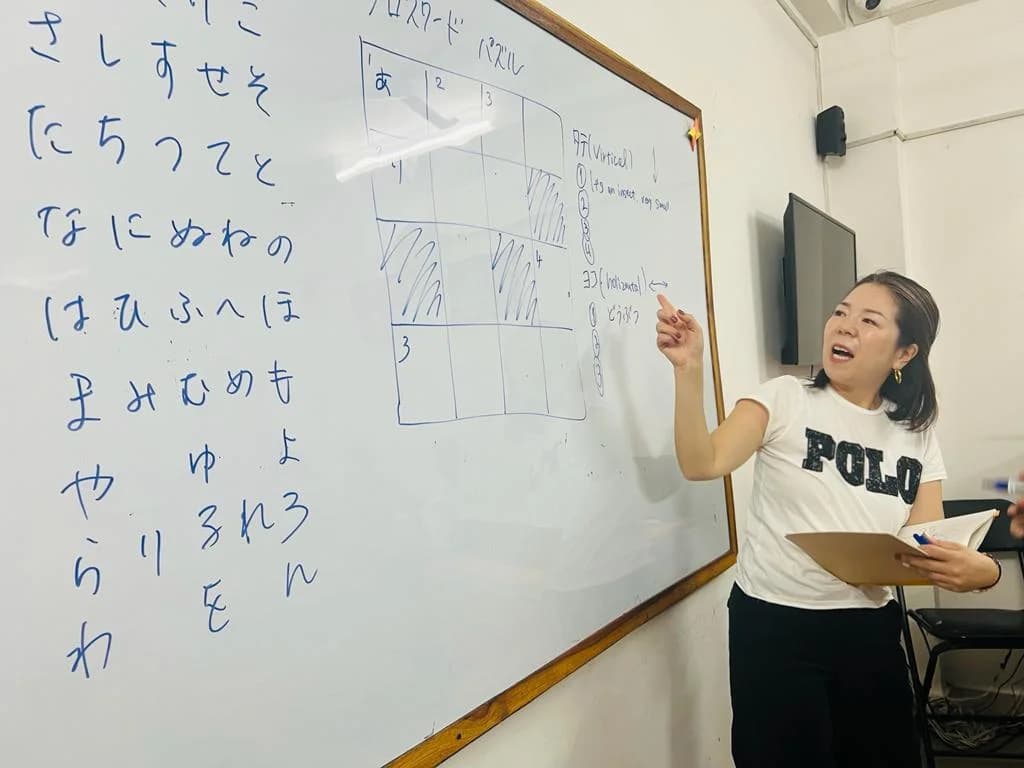 こ
さしすせそ
たちつてと
なにぬねの
はひふへほ
まみむめも
やゆよ
らりるれろ
わをん
クロスワード パズル
1 あ 2 3
り
4
3
タテ(Virtical) ↓
① It's an insect. very small
②
③
④
ヨコ(horizontal) ↔
① どうぶつ
②
③
POLO